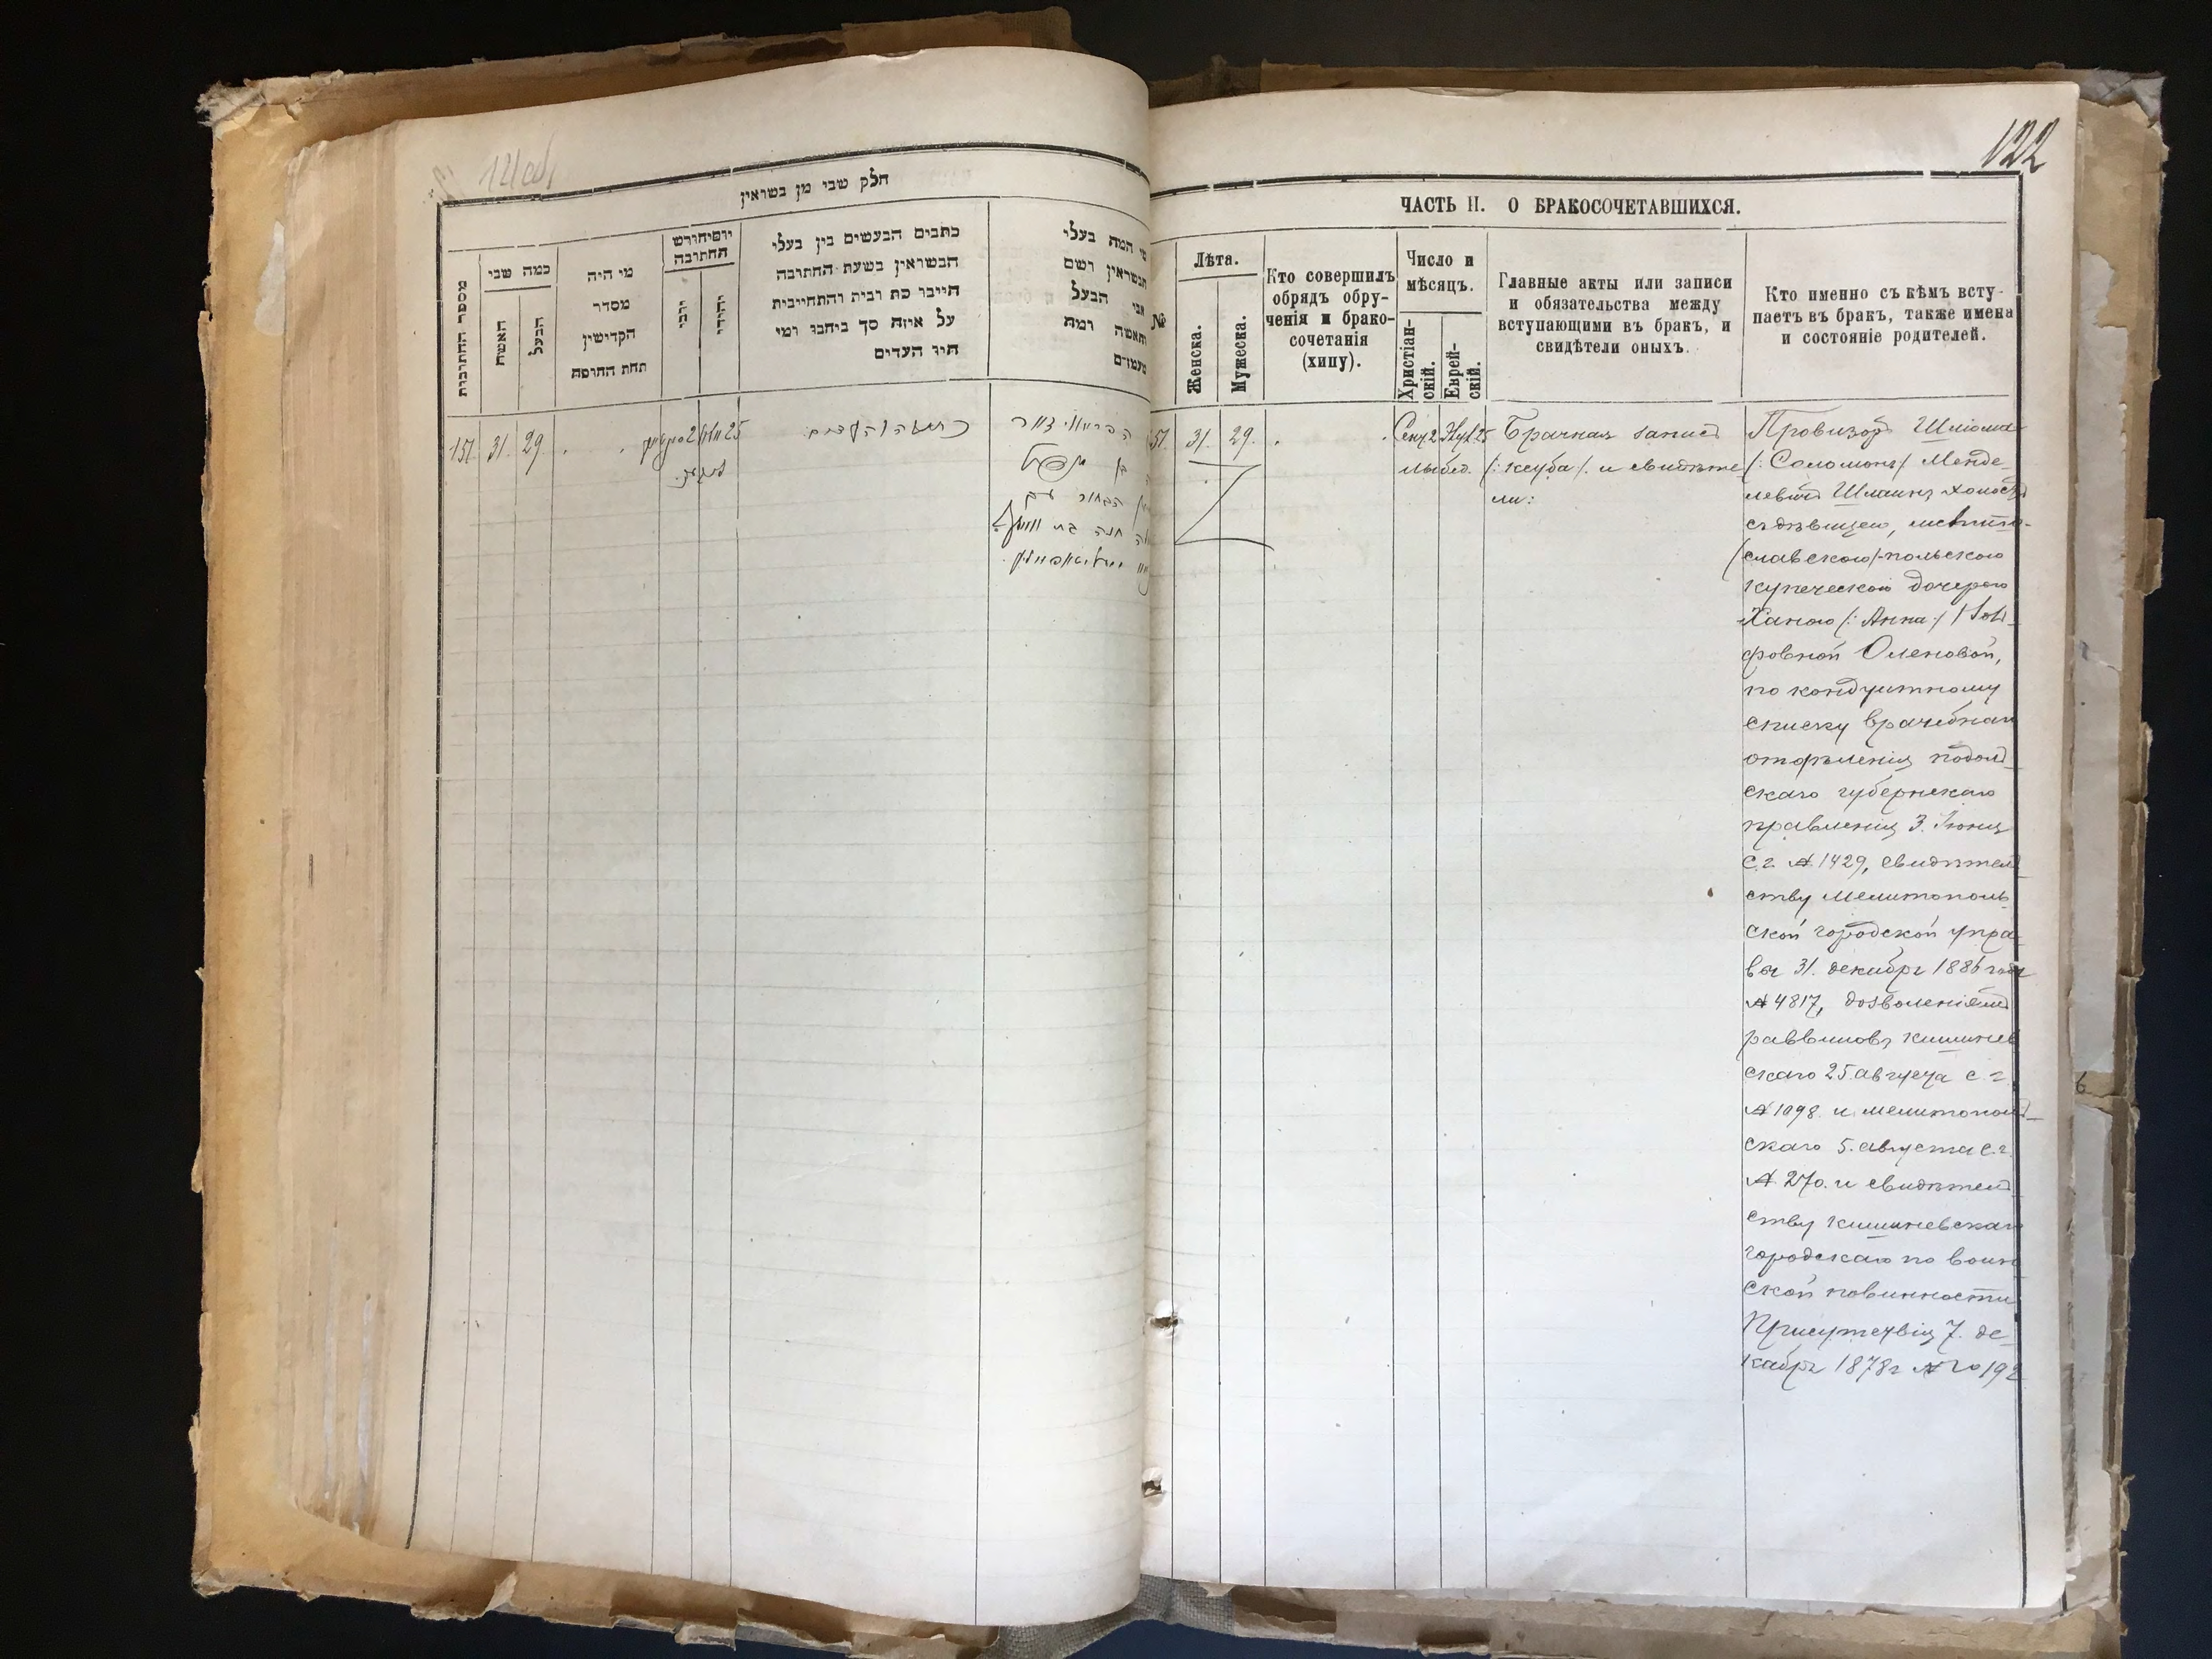 חלק שני מן הנשואין
מספר החתונות
כמה שני
האשה
הבעל
מי היה
מסדר
הקדישין
תחת החופה
יום וחודש
החתונה
נוצרי
יהודי
כתבים הנעשים בין בעלי
הנשואין בשעת החתונה
חייבו כת ובית והתחייבות
על איזה סך ביחבו ומי
היו העדים
מי המה בעלי
הנשואין ושם
אבי הבעל
והאשה ומה
מעמדם
157 31. 29.
122
ЧАСТЬ II. О БРАКОСОЧЕТАВШИХСЯ.
№
Лѣта.
Женска.
Мужеска.
Кто совершилъ
обрядъ обру-
ченія и брако-
сочетанія
(хипу).
Число и
мѣсяцъ.
Христіан-
скій.
Еврей-
скій.
Главные акты или записи
и обязательства между
вступающими въ брак, и
свидѣтели оныхъ.
Кто именно съ кѣмъ всту-
паетъ въ брак, также имена
и состояніе родителей.
57. 31. 29.
Брачная запись
/: кеуба /. и свидѣте
ли:
Провизоръ Шлiома
/: Соломонъ/ Менде-
левичъ Шмаинъ холостъ
съ дѣвицею,
славскою/-польскою
купеческою дочерью
Ханою /: Анна :/
Оленовой,
по кондуитному
списку врачебнаго
отдѣленія подоль
скаго губернскаго
правленія 3. Іюня
с.г. № 1429, свидѣтель
ству мелитополь-
ской городской упра-
вы 31. декабря 1886 года
№ 4817, дозволеніямъ
раввиновъ кишинев
скаго 25. августа с. г.
№ 1098. и мелитополь-
скаго 5. августа с. г.
№ 270. и свидѣтель
ству кишиневскаго
городскаго по воин
ской повинности
Присутствія 7. де-
кабря 1878г №